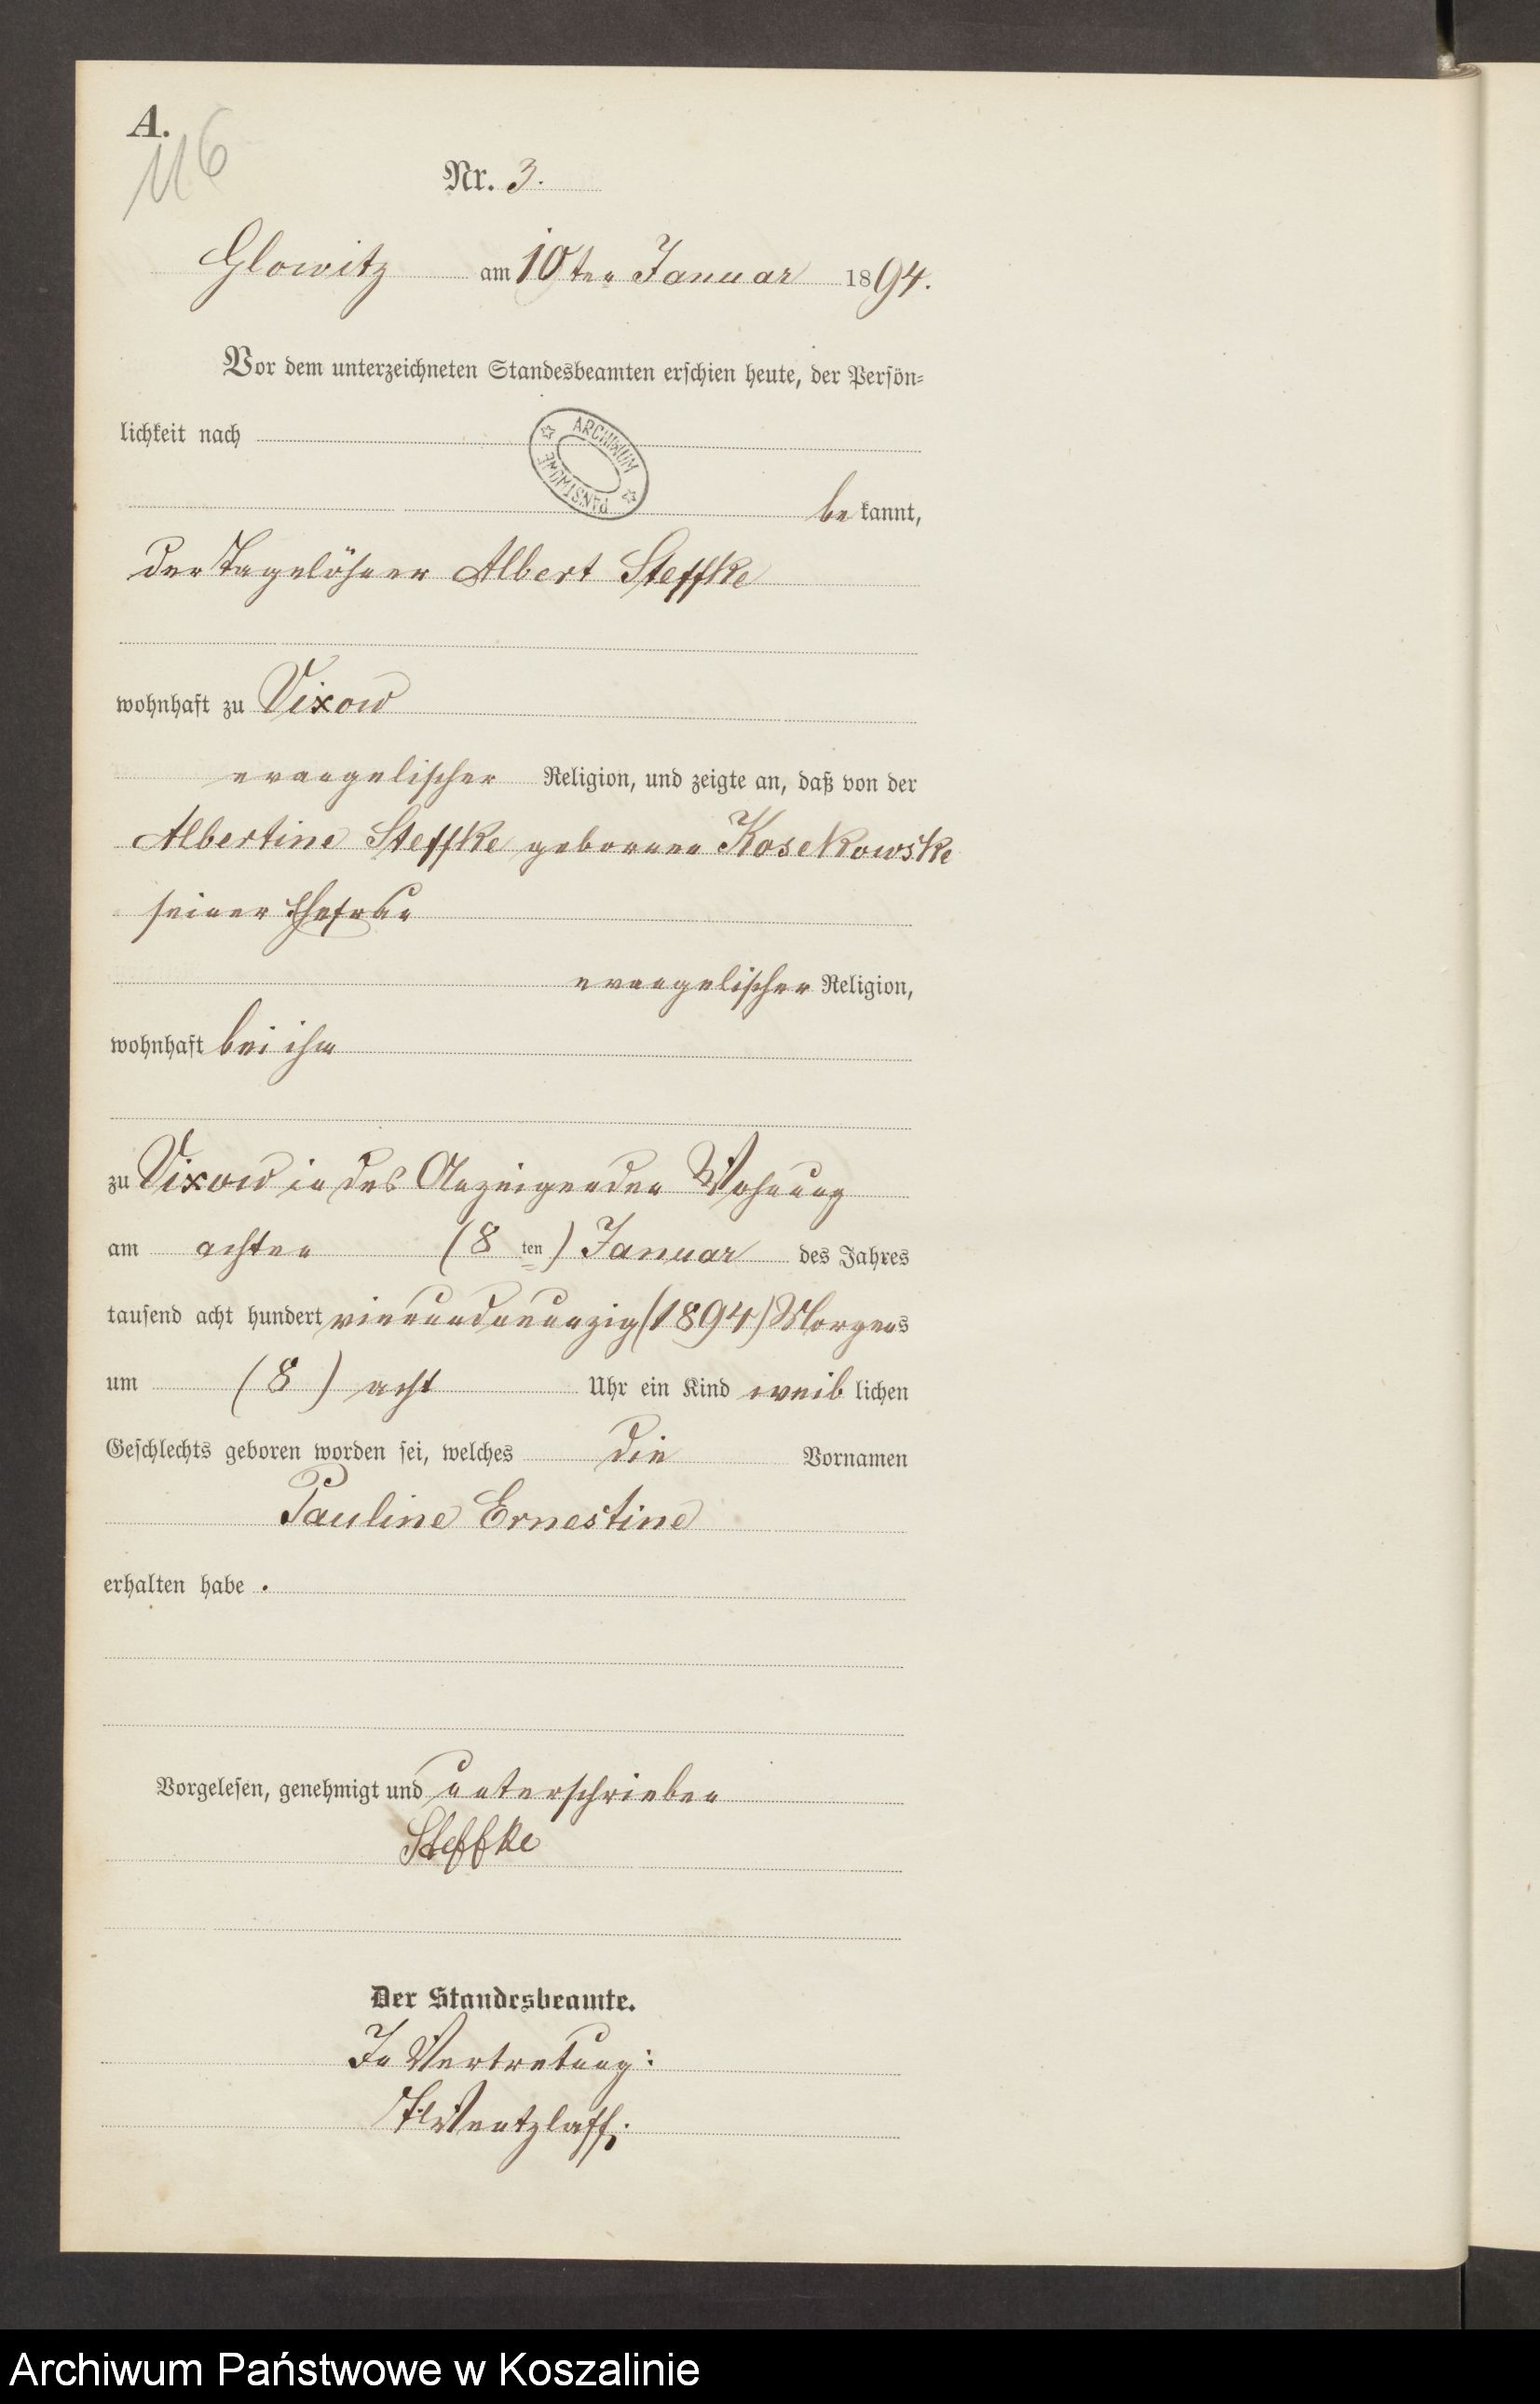 A.
116
Nr. 3.
Glowitz am 10ten Januar 1894.
Vor dem unterzeichneten Standesbeamten erschien heute, der Persön-
lichkeit nach
ARCHIWUM PAŃSTWOWE
be kannt,
der Tagelöhner Albert Steffke
wohnhaft zu Vixow
evangelischer Religion, und zeigte an, daß von der
Albertine Steffke geborenen Kosekowske
seiner Ehefrau
evangelischer Religion,
wohnhaft bei ihm
zu Vixow in des Anzeigenden Wohnung
am achten (8 ten) Januar des Jahres
tausend acht hundert vierundneunzig (1894) Morgens
um (8) acht Uhr ein Kind weib lichen
Geschlechts geboren worden sei, welches die Vornamen
Pauline Ernestine
erhalten habe .
Vorgelesen, genehmigt und unterschrieben
Steffke
Der Standesbeamte.
In Vertretung:
Wentzlaff.
Archiwum Państwowe w Koszalinie